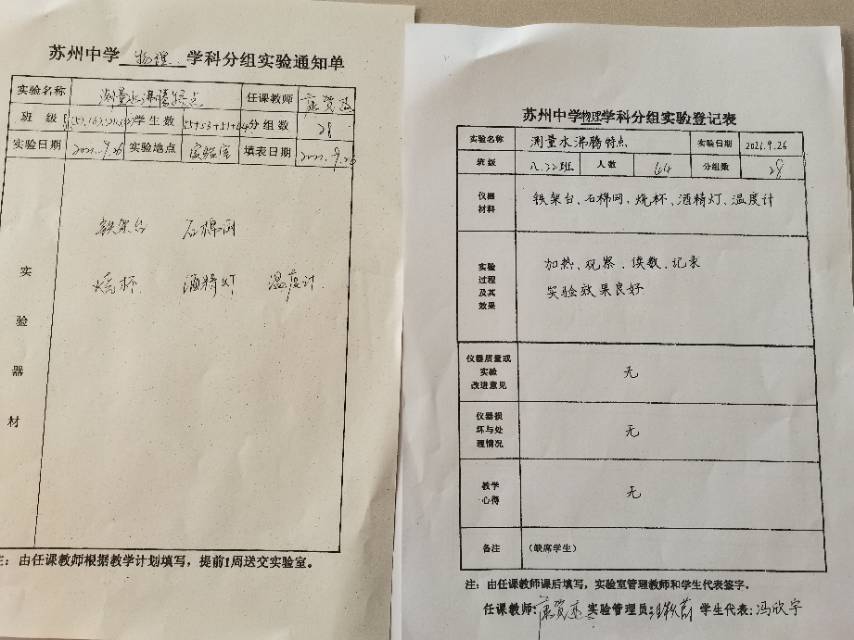 苏州中学 物理 学科分组实验通知单
实验名称 测量水沸腾特点 任课教师
班 级 学生数 分组数 28
实验日期 实验地点 实验室 填表日期
铁架台 石棉网
烧杯 酒精灯 温度计
实
验
器
材
由任课教师根据教学计划填写，提前1周送交实验室。
苏州中学物理学科分组实验登记表
实验名称 测量水沸腾特点 实验日期 2021.9.26
班级 八.22班 人数 64 分组数 28
仪器
材料
铁架台、石棉网、烧杯、酒精灯、温度计
实验
过程
及其
效果
加热、观察、读数、记录
实验效果良好
仪器质量或
实验
改进意见
无
仪器损
坏与处
理情况
无
教学
心得
无
备注 (缺席学生)
注：由任课教师课后填写，实验室管理教师和学生代表签字。
任课教师: 实验管理员: 学生代表:冯欣宇